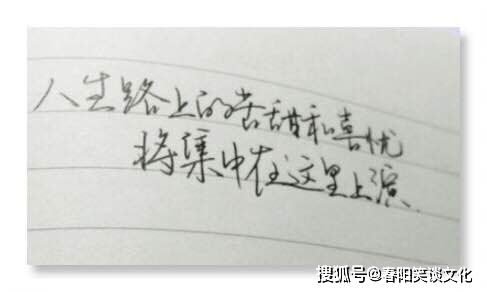 人生路上的苦甜和喜忧
将集中在这里上演
搜狐号@春阳笑谈文化